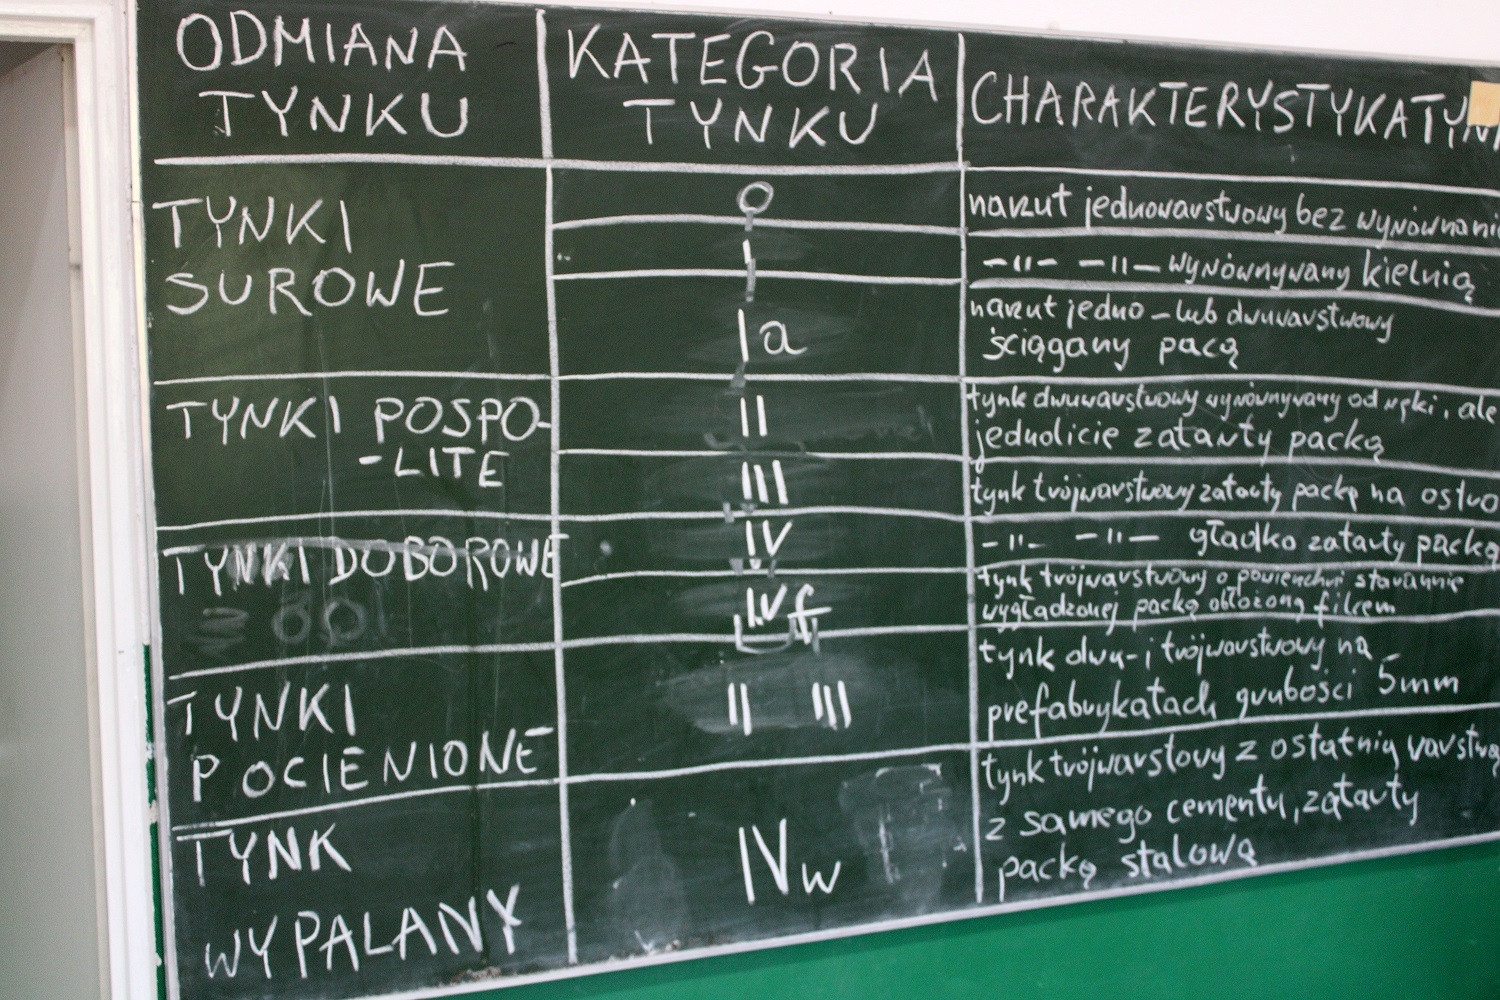 ODMIANA
TYNKU
KATEGORIA
TYNKU
CHARAKTERYSTYKA TYN
TYNKI
SUROWE
O
narzut jednowarstwowy bez wyrównani
I
-〃- -〃- wyrównywany kielnią
Ia
narzut jedno-lub dwuwarstwowy
ściągany pacą
TYNKI POSPO-
-LITE
II
tynk dwuwarstwowy wyrównywany od ręki, ale
jednolicie zatarty packą
III
tynk trójwarstwowy zatarty packą na ostro
TYNKI DOBOROWE
IV
-〃- -〃- gładko zatarty packą
IVf
tynk trójwarstwowy o powierzchni starannie
wygładzonej packą obłożoną filcem
TYNKI
POCIENIONE
II III
tynk dwu-i trójwarstwowy na
prefabrykatach grubości 5mm
TYNK
WYPALANY
IVw
tynk trójwarstowy z ostatnią warstwą
z samego cementu, zatarty
packą stalową